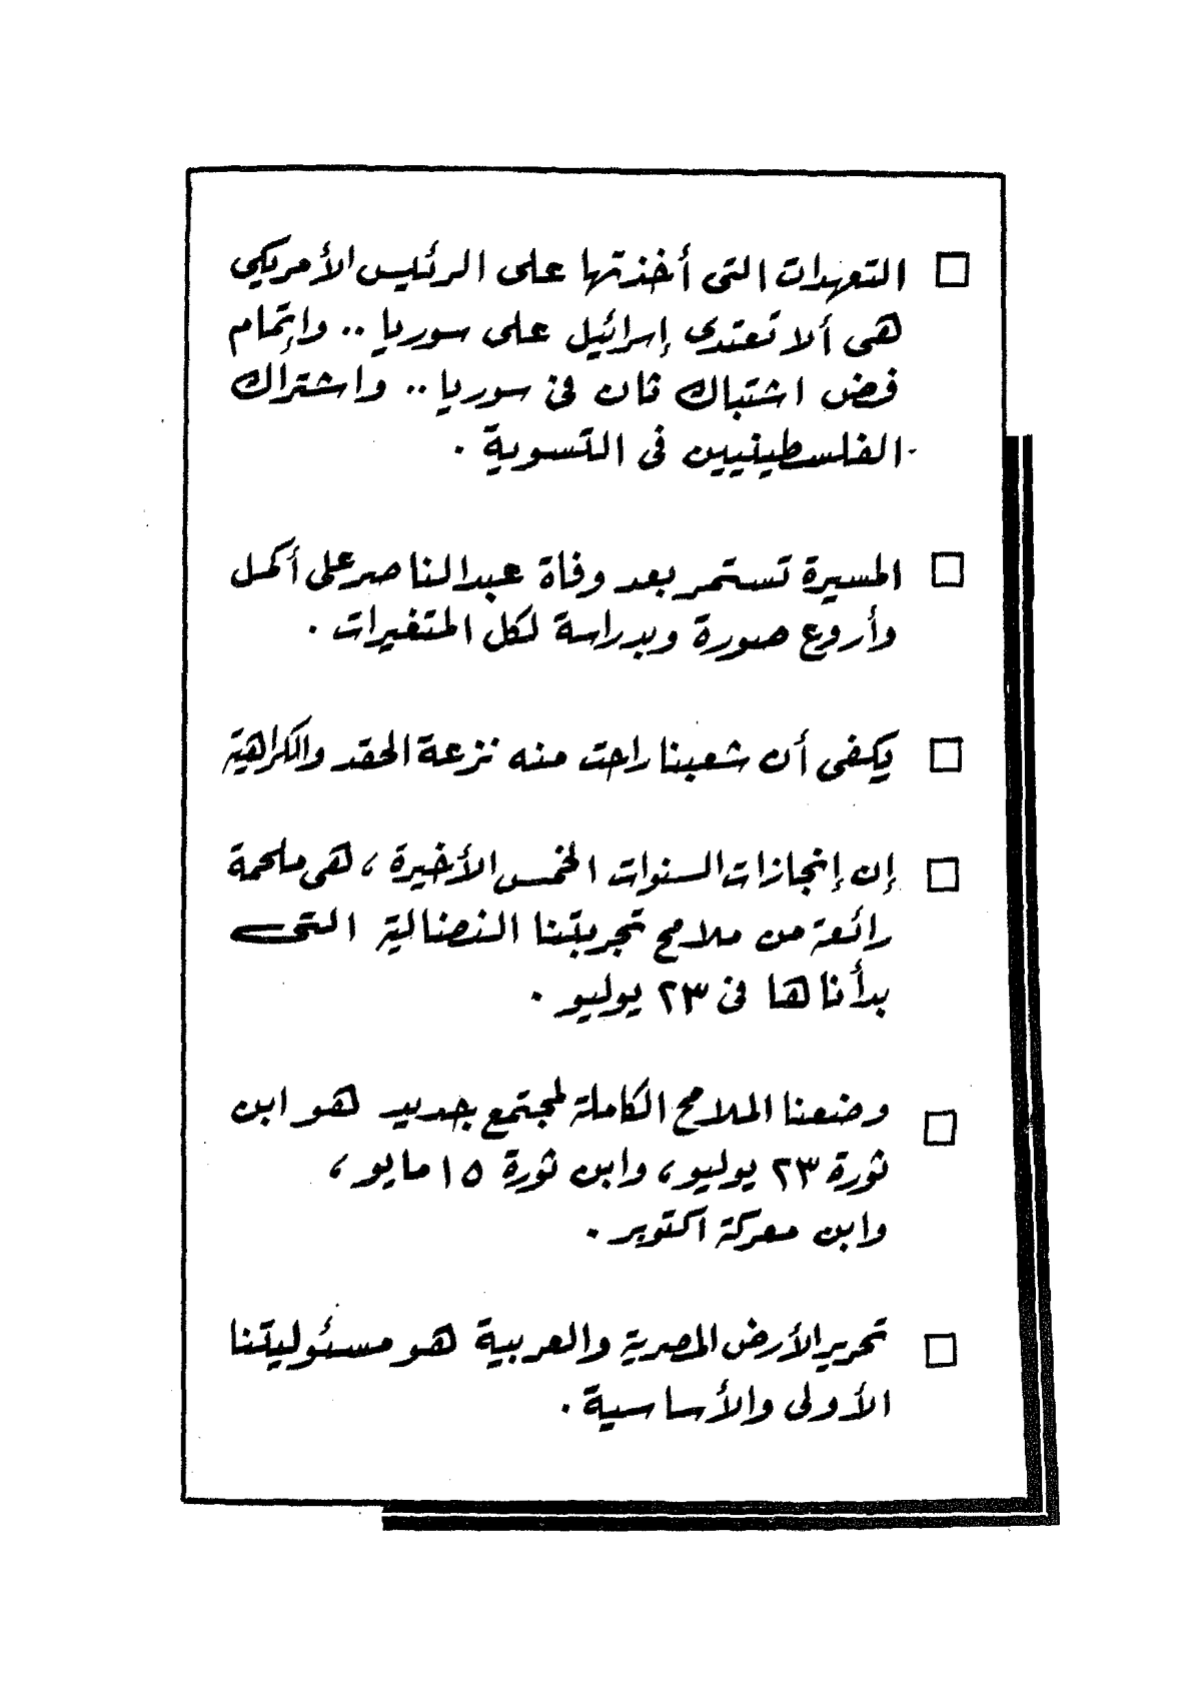 □ التعهدات التى أخذتها على الرئيس الأمريكي
هى ألا تعتدى إسرائيل على سوريا .. وإتمام
فض اشتباك ثان فى سوريا .. واشتراك
الفلسطينيين فى التسوية .
□ المسيرة تستمر بعد وفاة عبدالناصر على أكمل
وأروع صورة وبدراسة لكل المتغيرات .
□ يكفى أن شعبنا راحت منه نزعة الحقد والكراهية
□ إن إنجازات السنوات الخمس الأخيرة ، هى ملحمة
رائعة من ملامح تجربتنا النضالية التى
بدأناها فى ٢٣ يوليو .
□ وضعنا الملامح الكاملة لمجتمع جديد هو ابن
ثورة ٢٣ يوليو ، وابن ثورة ١٥ مايو ،
وابن معركة اكتوبر .
□ تحرير الأرض المصرية والعربية هو مسئوليتنا
الأولى والأساسية .